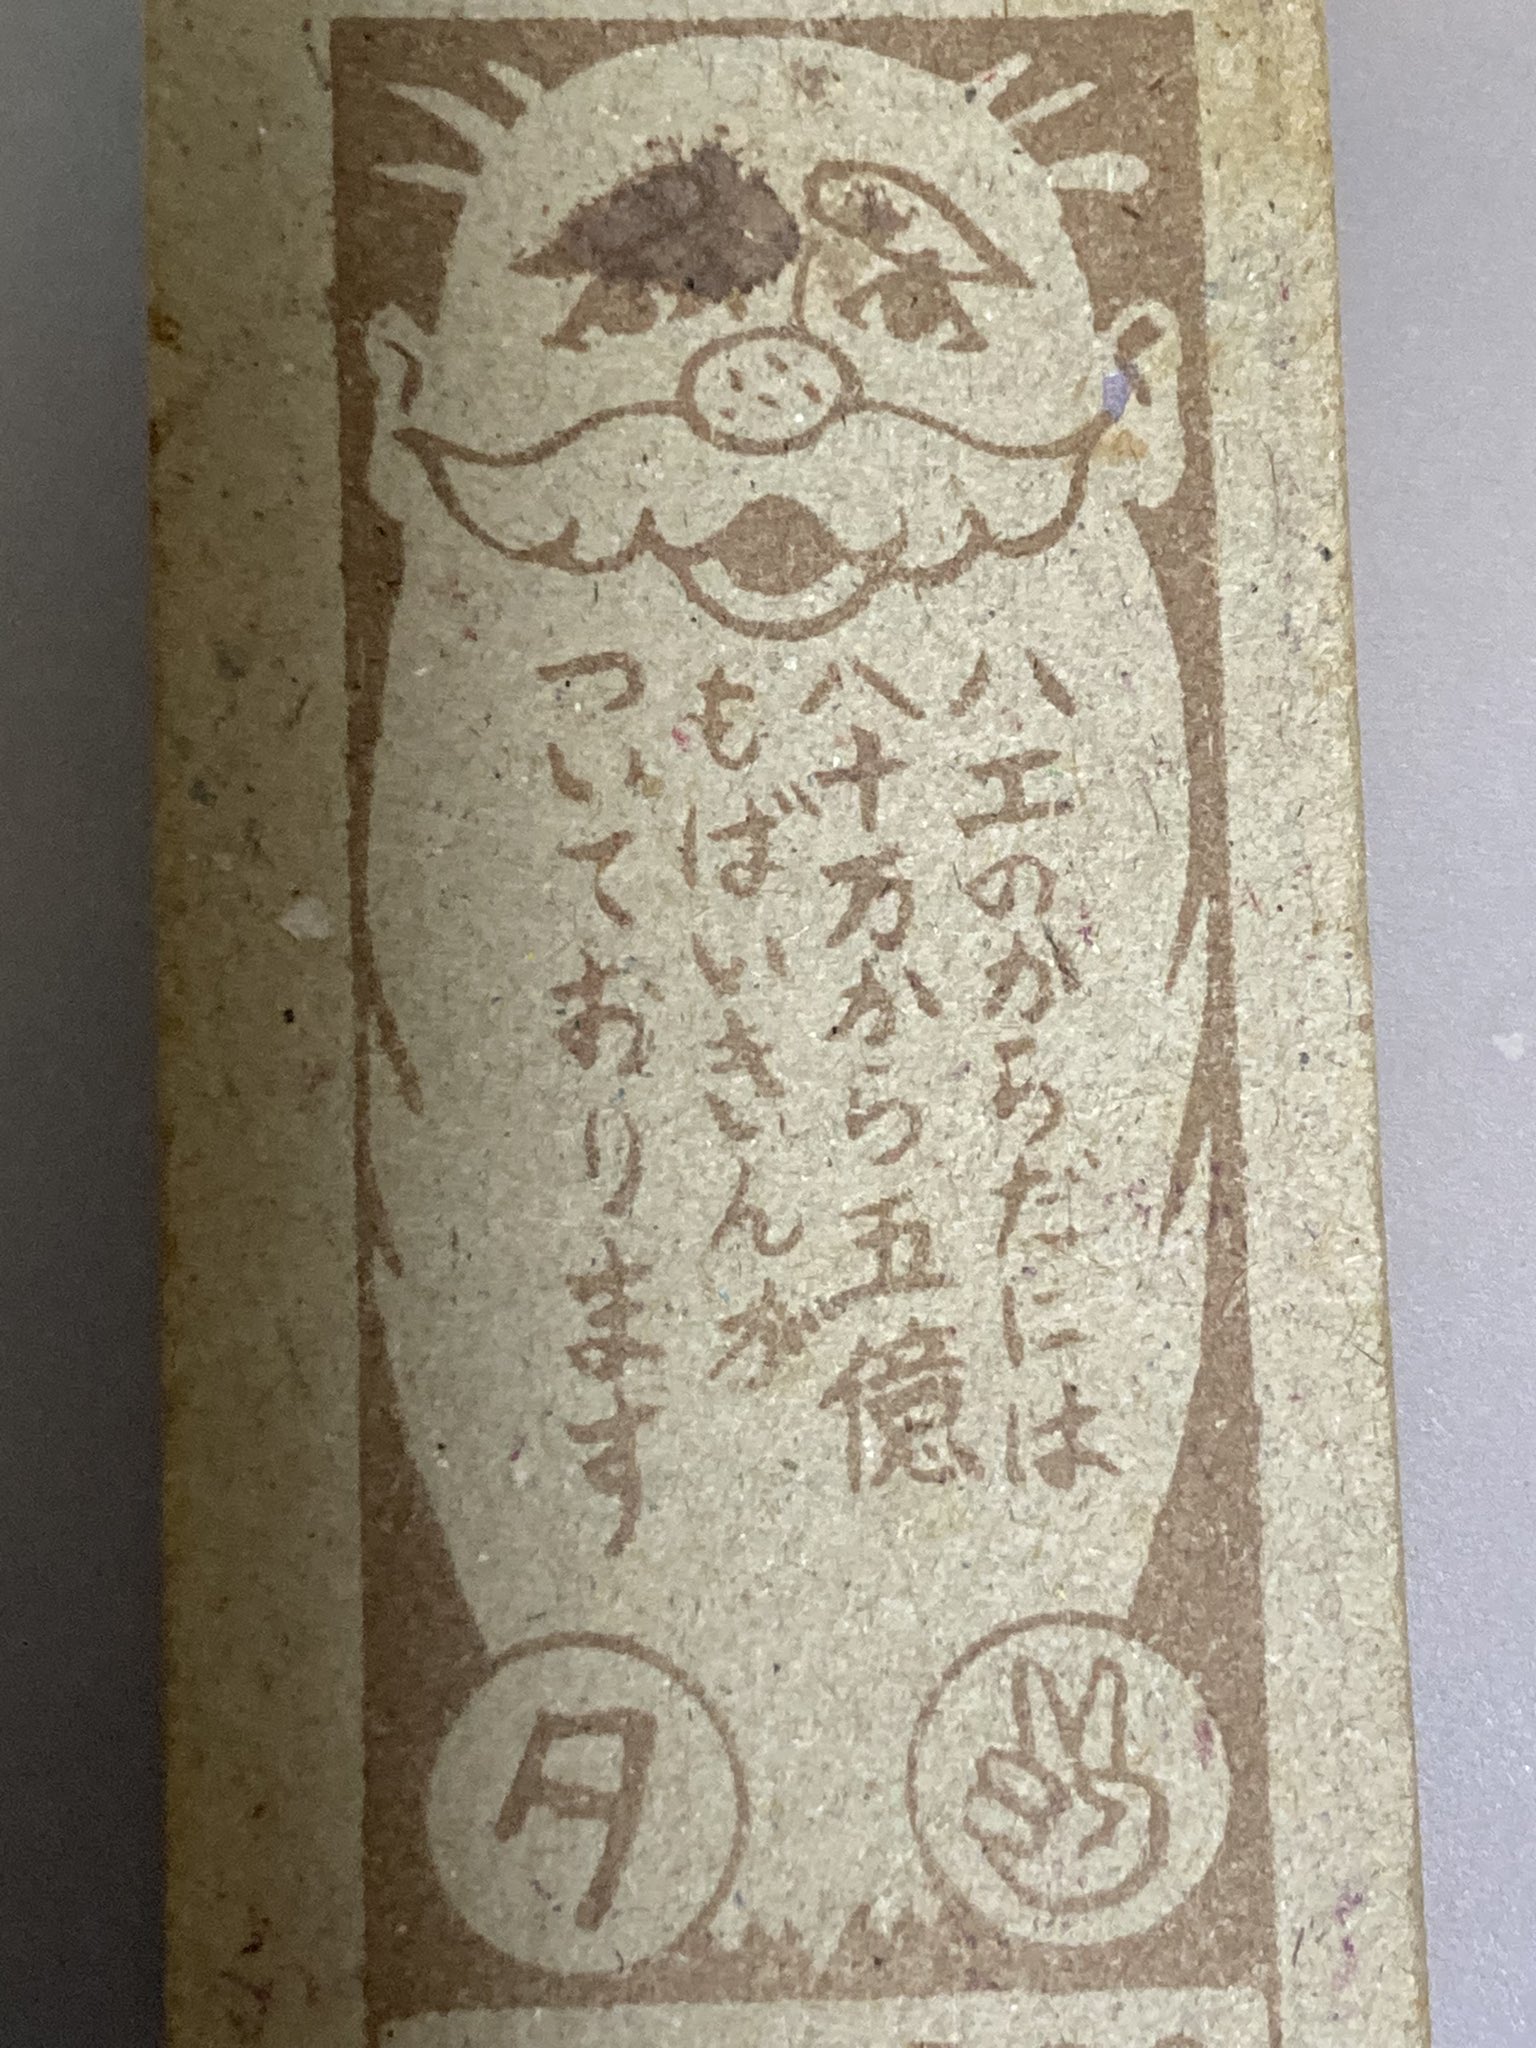 ハエのからだには
八十万から五億
もばいきんが
ついております
月